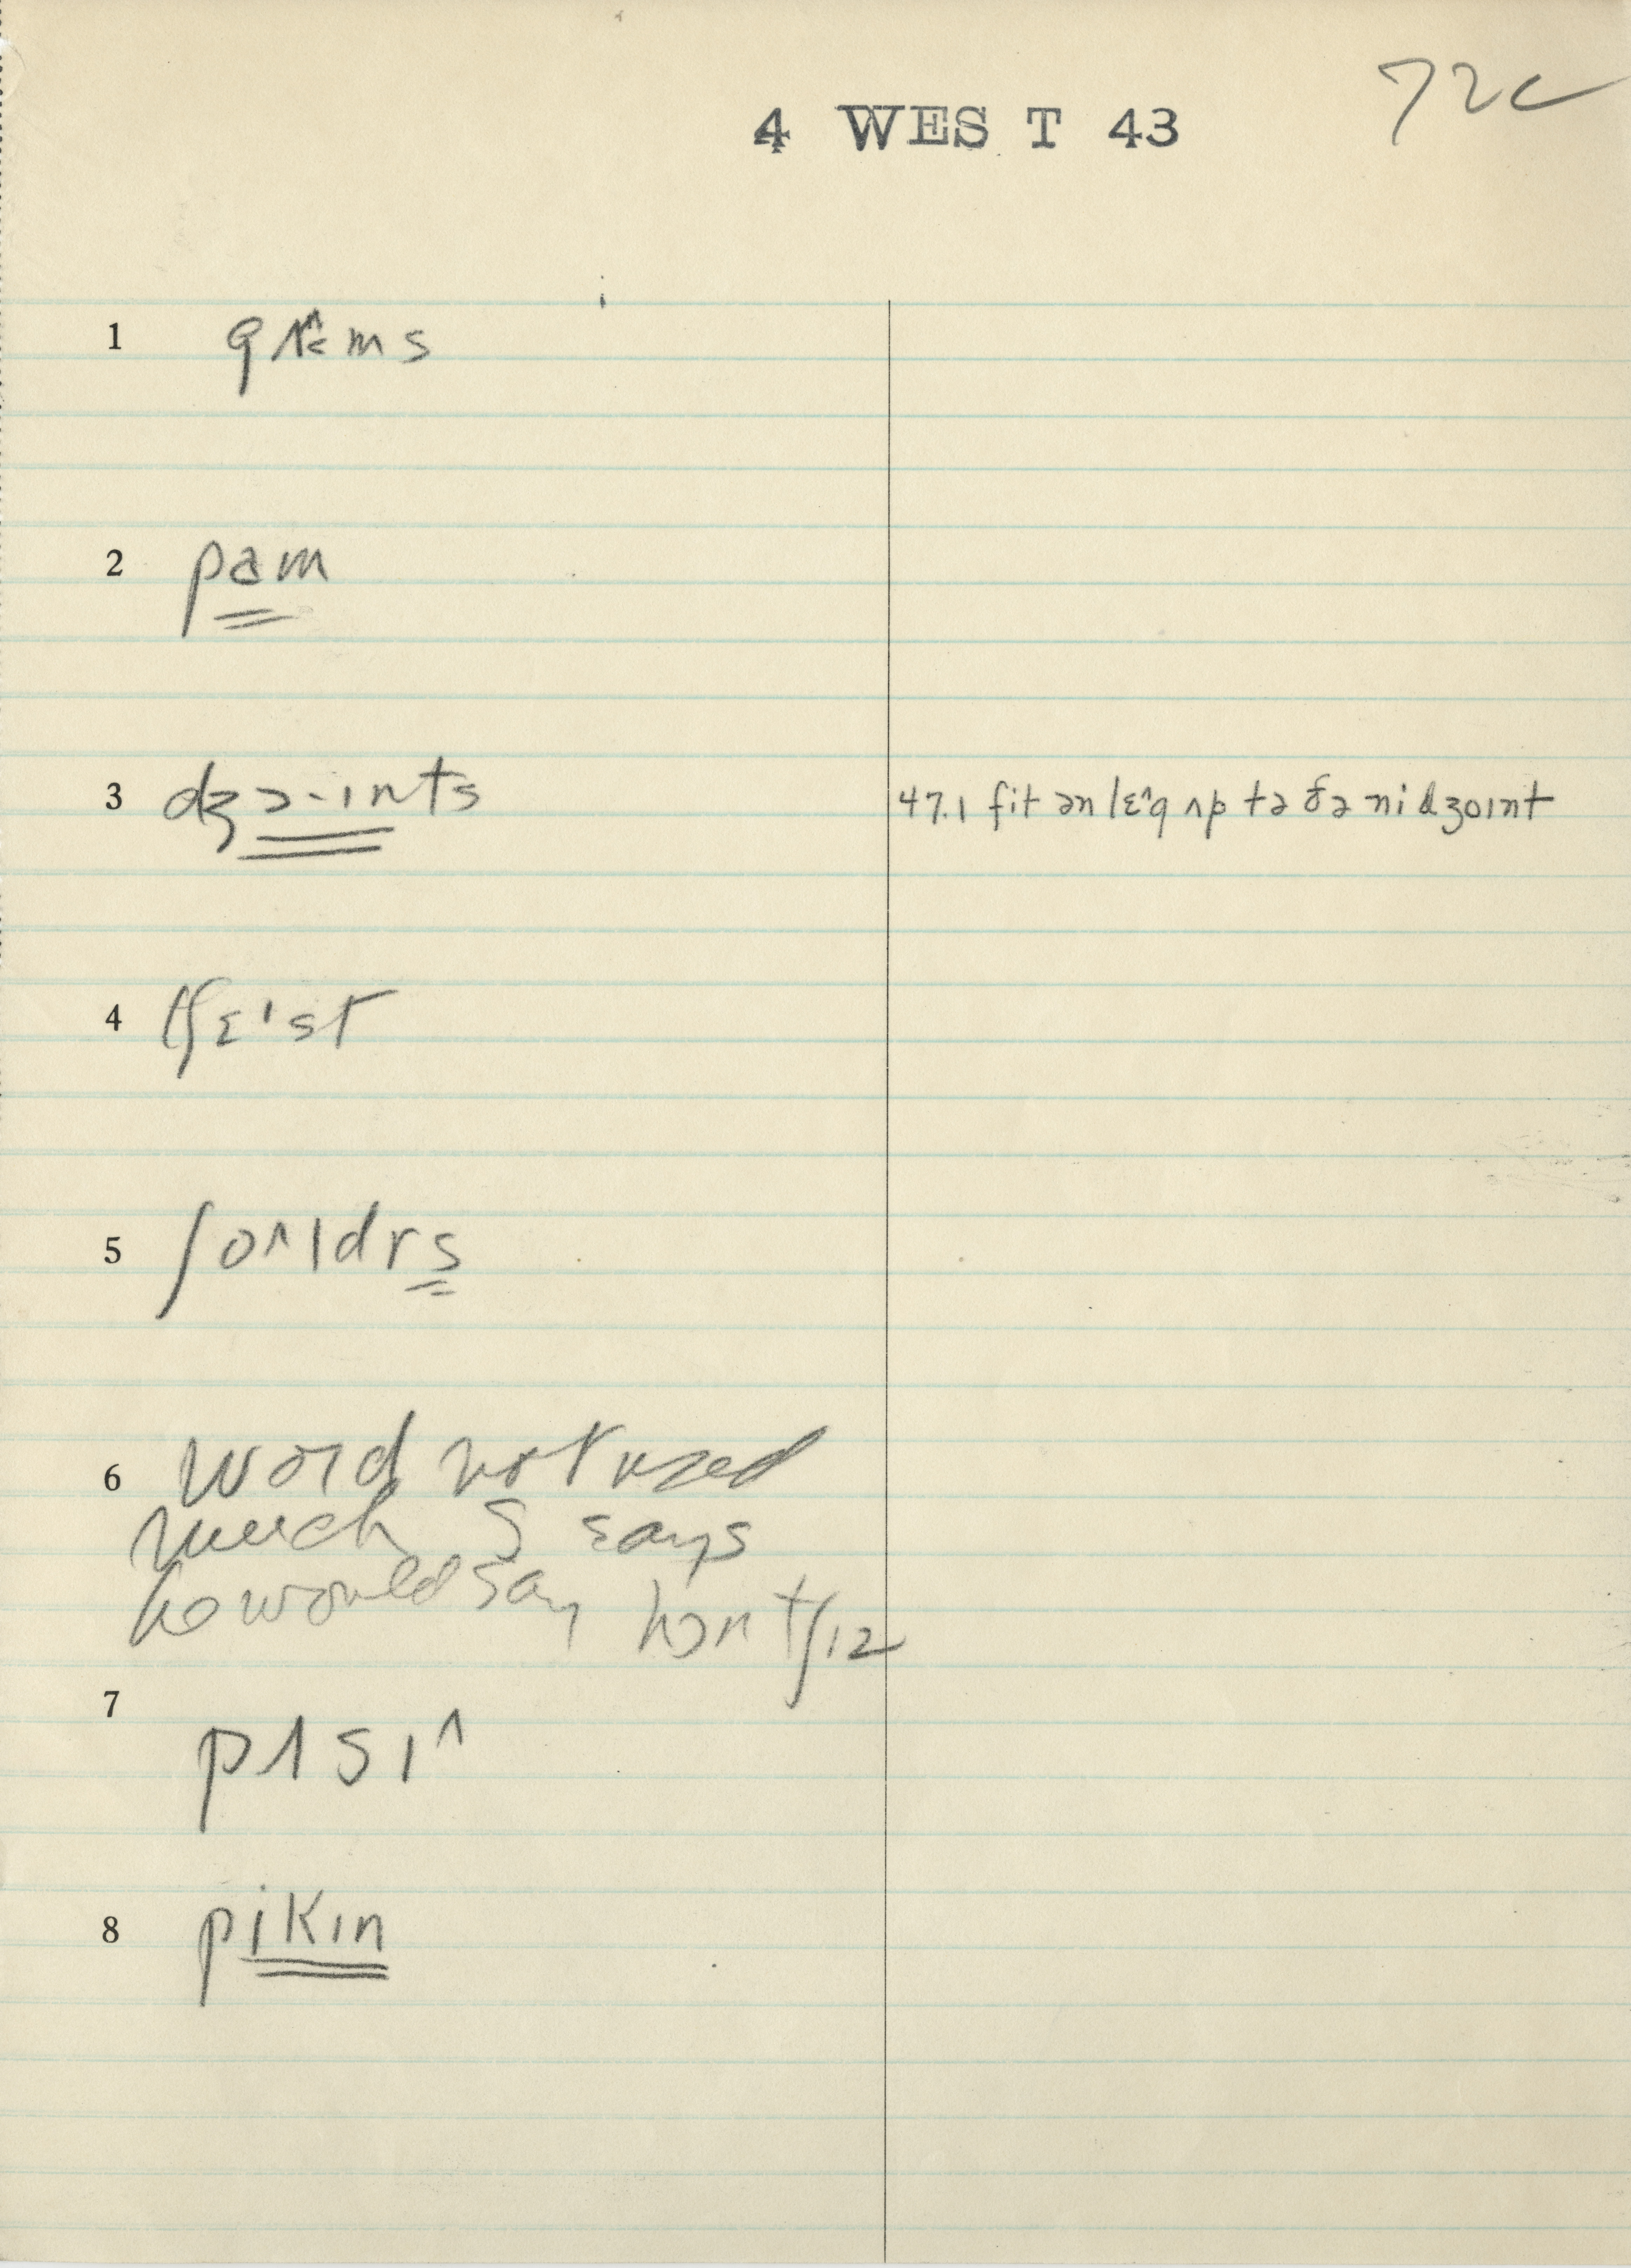 72c
4 WEST 43
1 gʌ^ms
2 pam
3 dʒɔ-ɪnts 47.1 fit ən lɛ^g ʌp tə ðə ni dʒoɪnt
4 tʃɛ'st
5 ʃo^ldrs
6 word not used
much S says
he would say hɔntʃɪz
7 pʌsɪ^
8 pikɪn